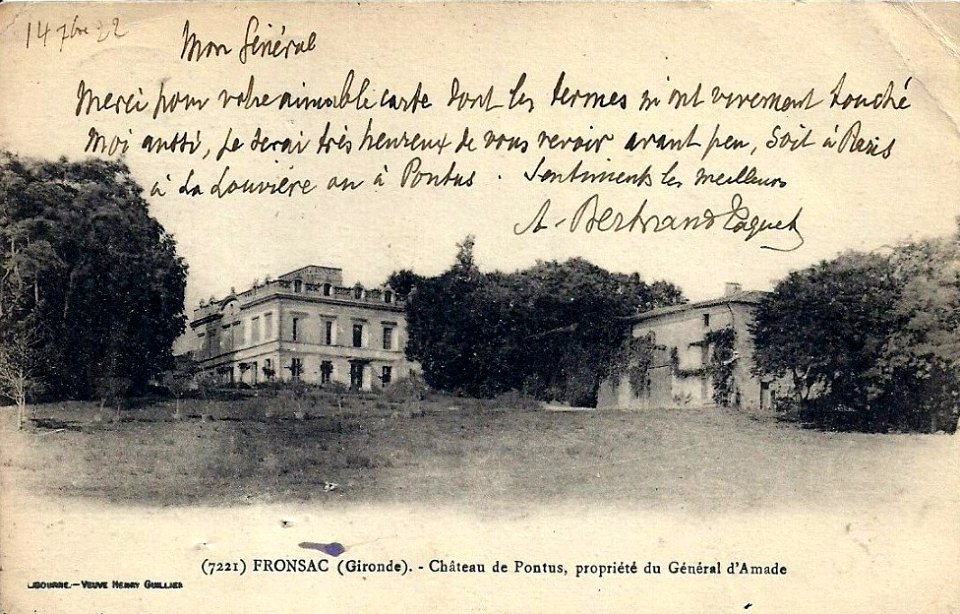 14 7bre 22
Mon Général
Merci pour votre aimable carte dont les termes m'ont vivement touché
Moi aussi, je serai très heureux de vous revoir avant peu, soit à Paris
à La Louvière ou à Pontus. Sentiments les meilleurs
A. Bertrand Taquet
(7221) FRONSAC (Gironde). - Château de Pontus, propriété du Général d'Amade
LIBOURNE.-VEUVE HENRY GUILLIER